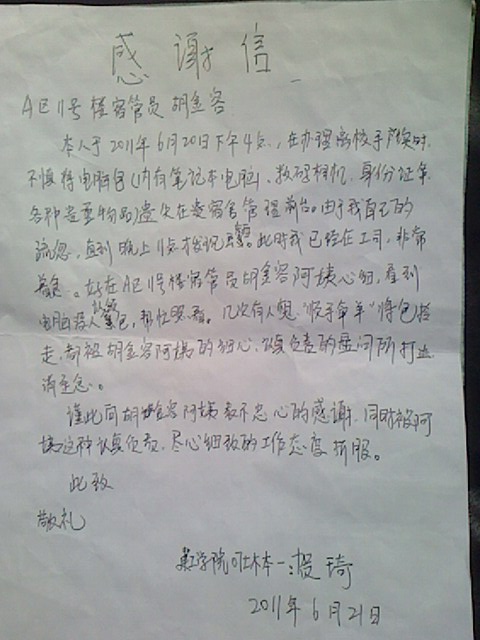 感谢信
A区11号楼宿管员 胡金容
本人于2011年6月20日下午4点,在办理离校手续时,
不慎将电脑包(内有笔记本电脑、数码相机、身份证等
各种贵重物品)遗失在宿管管理前台。由于我自己的
疏忽,直到晚上才发现。此时我已经在工司,非常
着急。好在A区11号楼宿管员胡金容阿姨心细,看到
电脑包,帮忙照看。几次有人想"顺手牵羊"将包拾
走,都被胡金容阿姨的细心、认真负责的盘问所打
消歪念。
谨此向胡金容阿姨表示忠心的感谢,同时被阿
姨这种认真负责,尽心细致的工作态度折服。
此致
敬礼
学院 琦
2011年6月21日